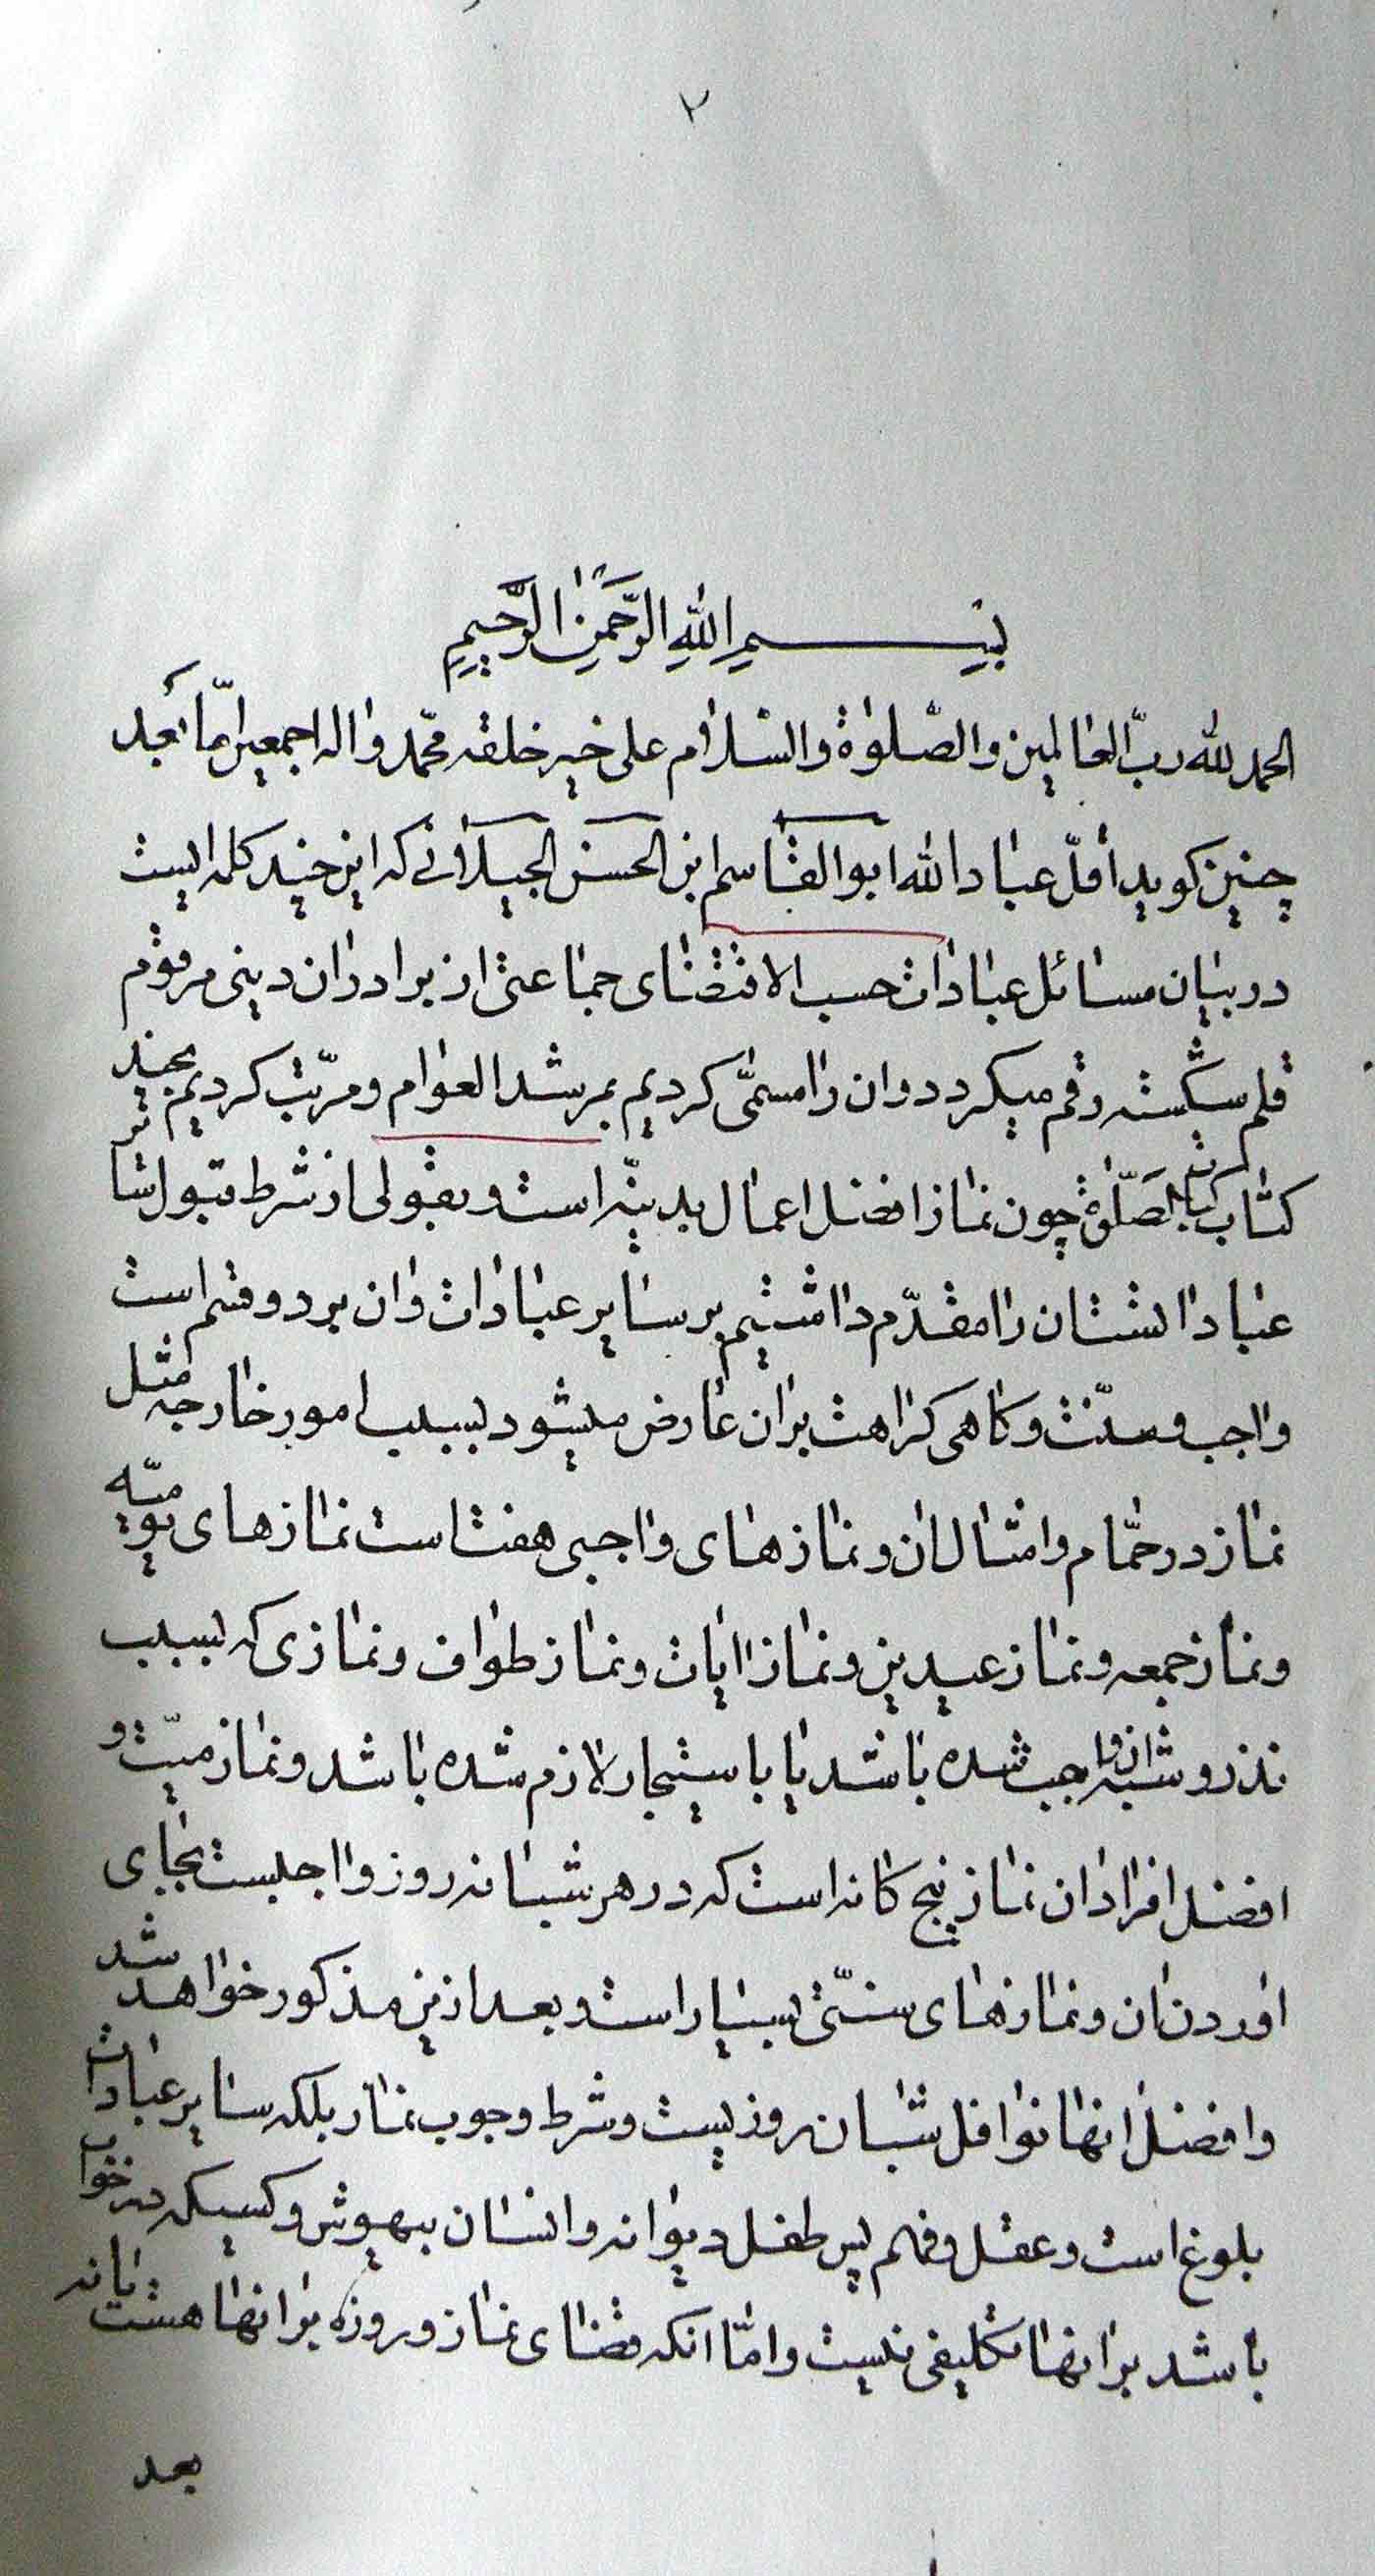 ۲
بسم الله الرحمن الرحیم
الحمد لله رب العالمین والصلوٰة والسلام علی خیر خلقه محمد واله اجمعین اما بعد
چنین کوید اقل عباد الله ابو القاسم ابن الحسن الجیلانی که این چند کلمه ایست
در بیان مسائل عبادات حسب الاقتضای جماعتی از برادران دینی مرقوم
قلم شکسته رقم میکردد وان را مسمی کردیم بمرشد العوام و مرتب کردیم بچند
کتاب کتاب الصلوة چون نماز افضل اعمال بدینه است و بقولی از شرط قبول سا
عبادا تستان را مقدم داشتیم بر سایر عبادات وان بر دو قسم است
واجب و سنت و کاهی کراهت بران عارض میشود بسبب امور خارجه مثل
نماز در حمام و امثال ان و نمازهای واجبی هفت است نمازهای یومیه
و نماز جمعه و نماز عیدین و نماز ایات و نماز طواف و نمازی که بسبب
نذر و شبه ان واجب شده باشد یا باستیجار لازم شده باشد و نماز میت و
افضل افراد ان نماز پنج کانه است که در هر شبانه روز واجبست بجای
اوردن ان و نمازهای سنتی بسیار است و بعد ازین مذکور خواهد شد
و افضل انها نوافل شبان روزیست و شرط وجوب نماز بلکه سایر عبادات
بلوغ است و عقل و فهم پس طفل و دیوانه و انسان بیهوش و کسیکه در خواب
باشد بر انها تکلیفی نیست و اما انکه قضای نماز و روزه بر انها هست یا نه
بعد